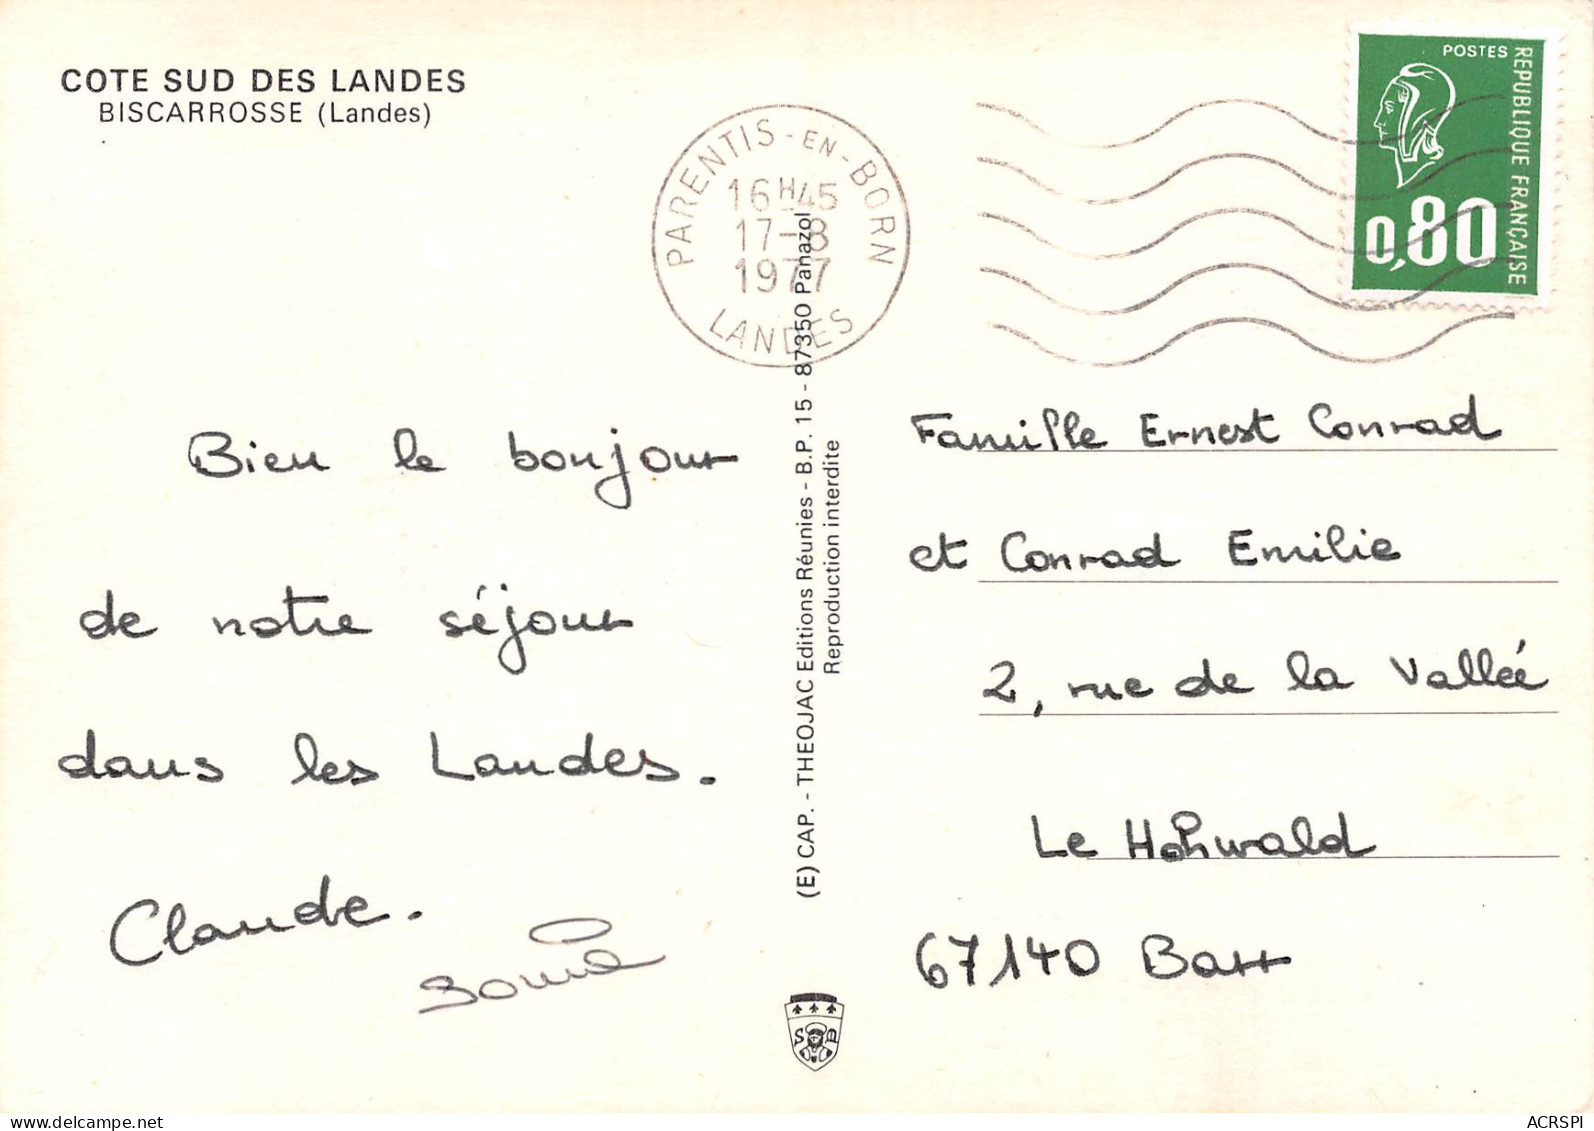 COTE SUD DES LANDES
BISCARROSSE (Landes)
PARENTIS-EN-BORN
16H45
17-8
1977
LANDES
POSTES
REPUBLIQUE FRANÇAISE
0,80
Bien le bonjour
de notre séjour
dans les Landes.
Claude.
(E) CAP. - THEOJAC Editions Réunies - B.P. 15 - 87350 Panazol
Reproduction interdite
Famille Ernest Conrad
et Conrad Emilie
2, rue de la Vallée
Le Hohwald
67140 Barr
delcampe.net
ACRSPI